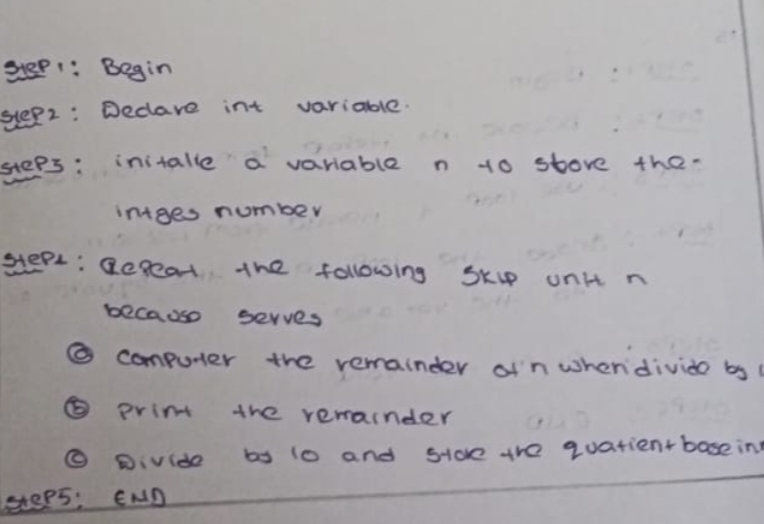 Step 1: Begin
Step 2: Declare int variable.
Step 3: initalle a variable n to store the
intges number
Step 4: Repeat the following skip unti n
because serves
ⓐ computer the remainder of n when divide by
ⓑ print the remainder
ⓒ Divide by 10 and store the quatient base in
Step 5: END